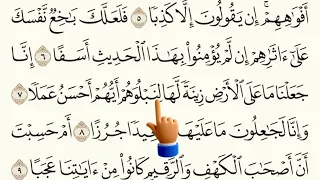 أَفْوَٰهِهِمْ ۚ إِن يَقُولُونَ إِلَّا كَذِبًا ٥ فَلَعَلَّكَ بَٰخِعٌ نَّفْسَكَ
عَلَىٰٓ ءَاثَٰرِهِمْ إِن لَّمْ يُؤْمِنُوا۟ بِهَٰذَا ٱلْحَدِيثِ أَسَفًا ٦ إِنَّا
جَعَلْنَا مَا عَلَى ٱلْأَرْضِ زِينَةً لَّهَا لِنَبْلُوَهُمْ أَيُّهُمْ أَحْسَنُ عَمَلًا ٧
وَإِنَّا لَجَٰعِلُونَ مَا عَلَيْهَا جُرُزًا ٨ أَمْ حَسِبْتَ
أَنَّ أَصْحَٰبَ ٱلْكَهْفِ وَٱلرَّقِيمِ كَانُوا۟ مِنْ ءَايَٰتِنَا عَجَبًا ٩